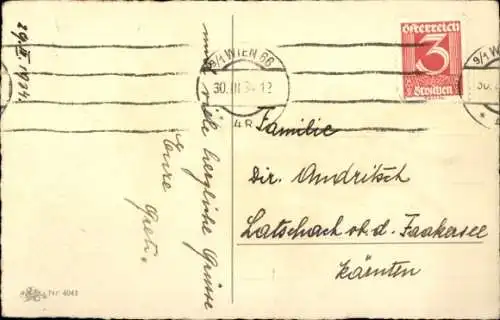 29.III.1934.
und viele herzliche Grüsse
Eure Greti.
9/1 WIEN 66
30.III.34.12
4R
österreich
3
Groschen
9/1 WIE
30.I
Familie
Dir. Andritsch
Latschach ob.d. Faakersee
Kärnten
Nr. 4043